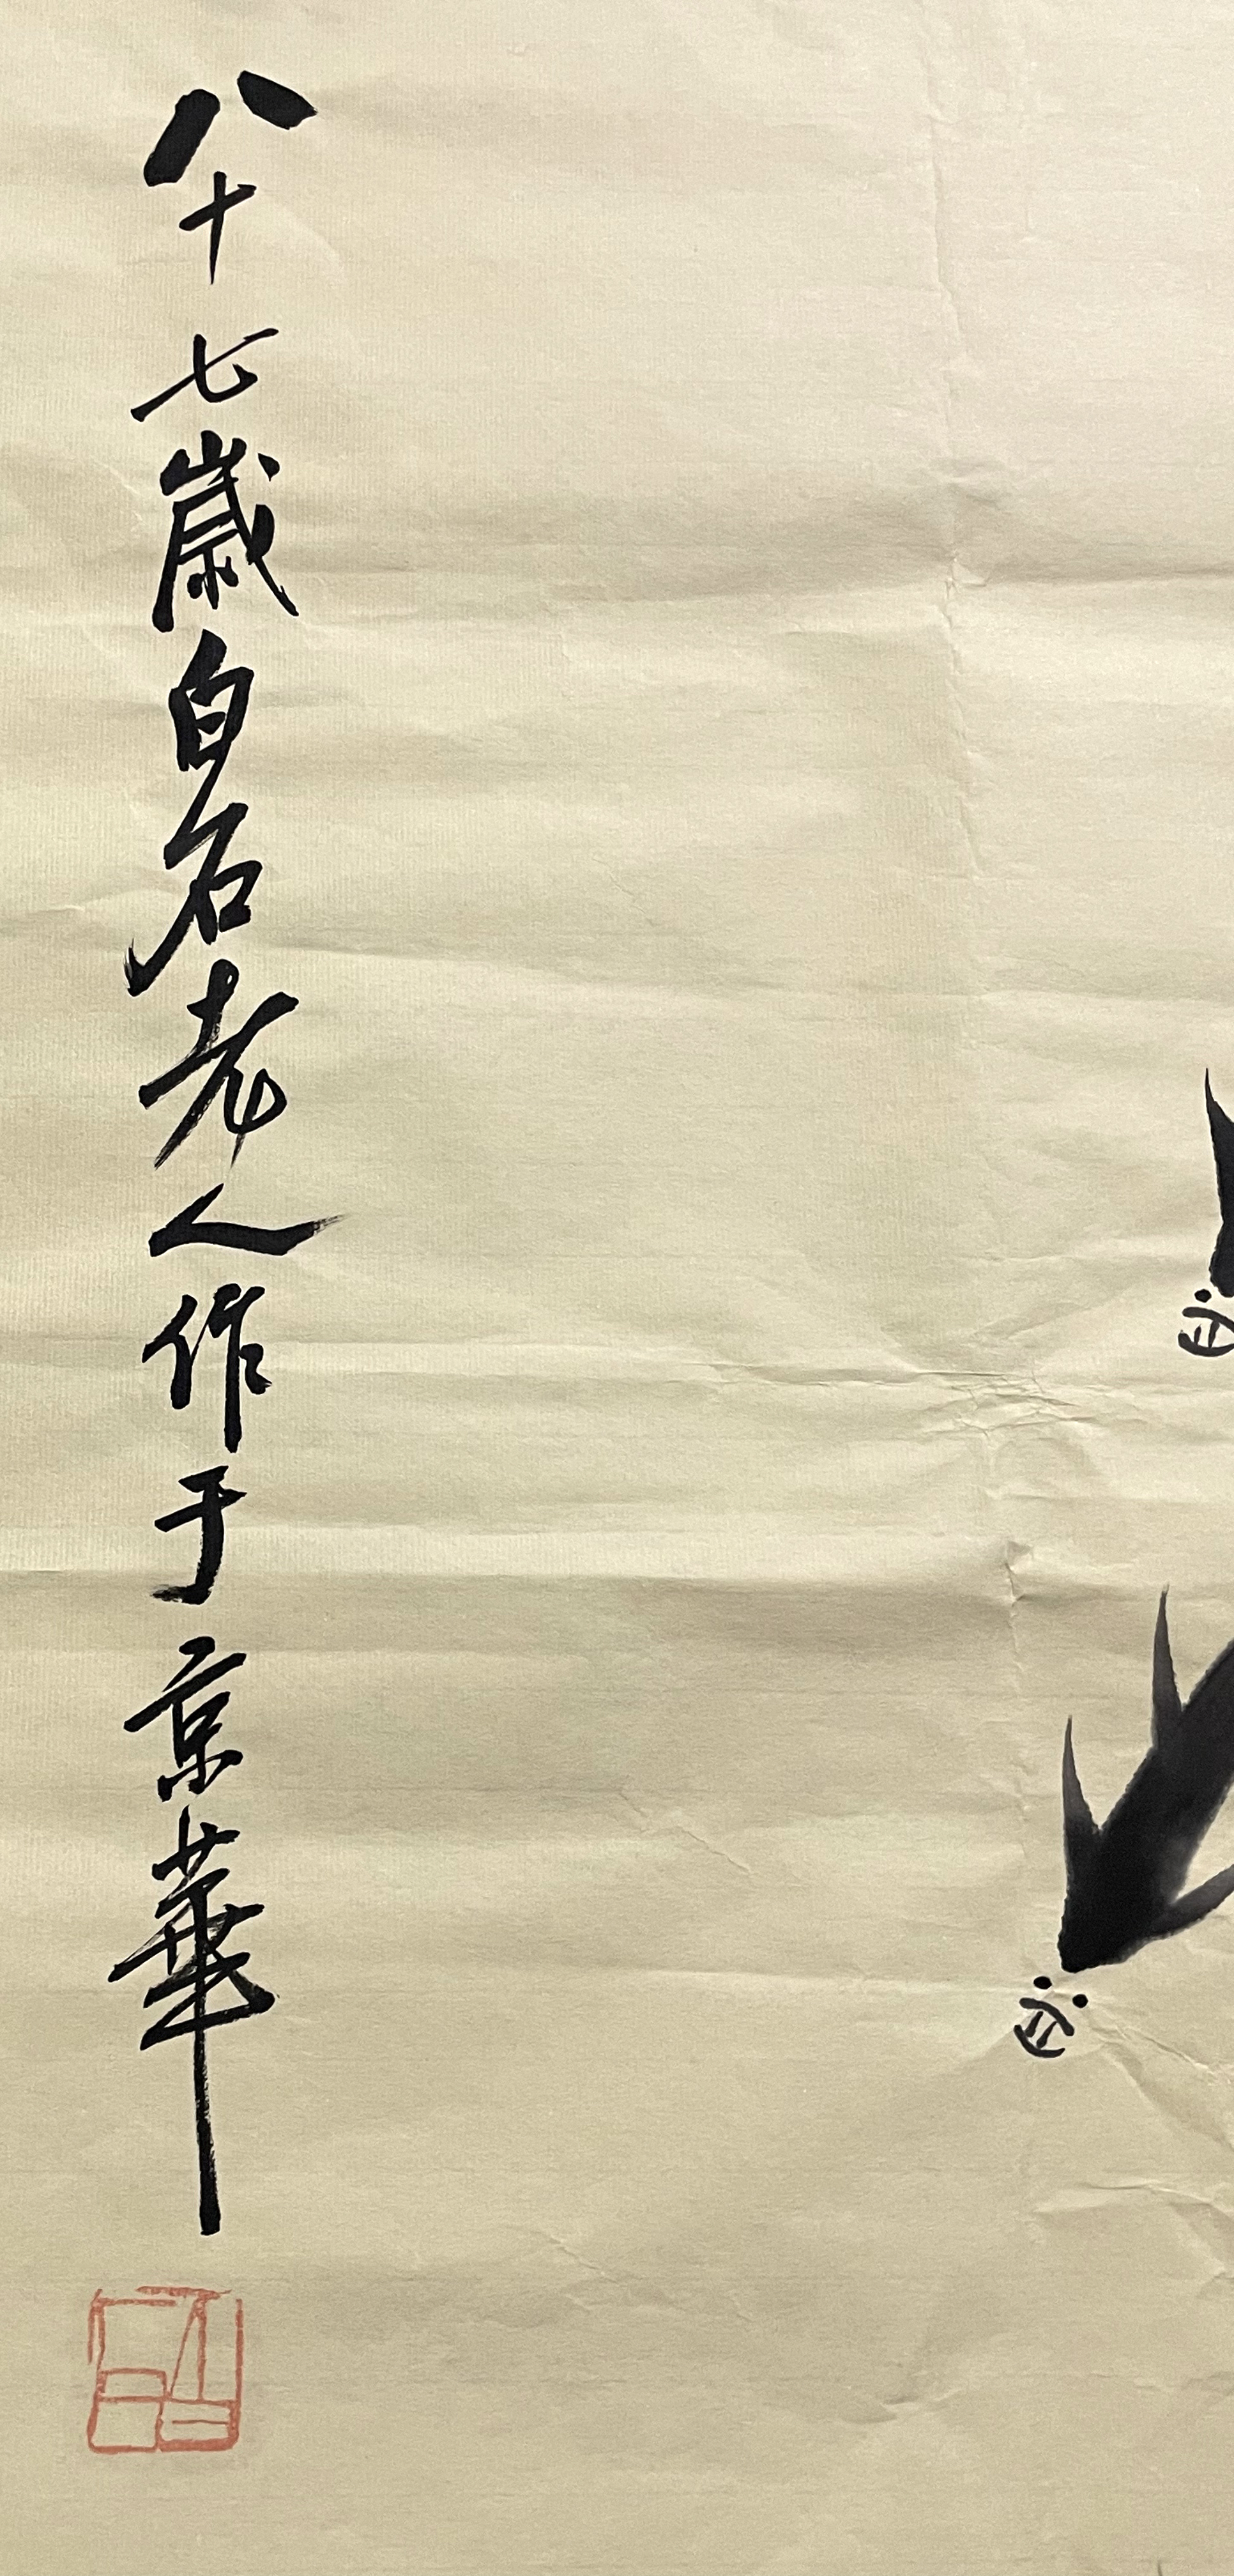 八十七歲白石老人作于京華